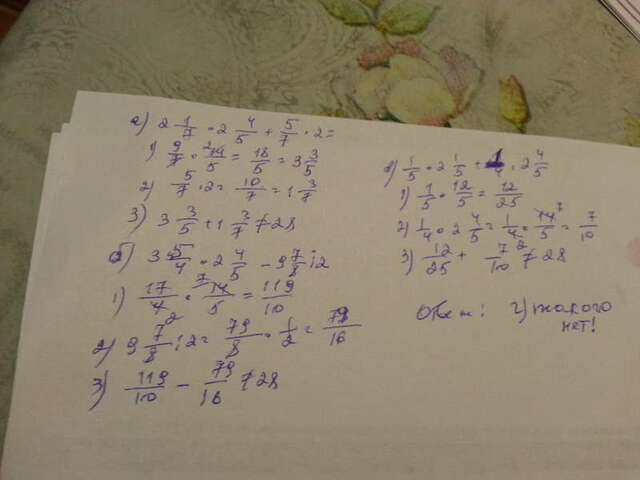 а) 2 1/7 · 2 4/5 + 5/7 · 2 =
1) 9/7 · 14/5 = 18/5 = 3 3/5
2) 5/7 · 2 = 10/7 = 1 3/7
3) 3 3/5 + 1 3/7 ≠ 28
б) 3 5/4 · 2 4/5 - 9 7/8 : 2
1) 17/4 · 14/5 = 119/10
2) 9 7/8 : 2 = 79/8 · 1/2 = 79/16
3) 119/10 - 79/16 ≠ 28
в) 1/5 · 2 1/5 + 1/4 · 2 4/5
1) 1/5 · 12/5 = 12/25
2) 1/4 · 2 4/5 = 1/4 · 14/5 = 7/10
3) 12/25 + 7/10 ≠ 28
Ответ: г) такого
нет!